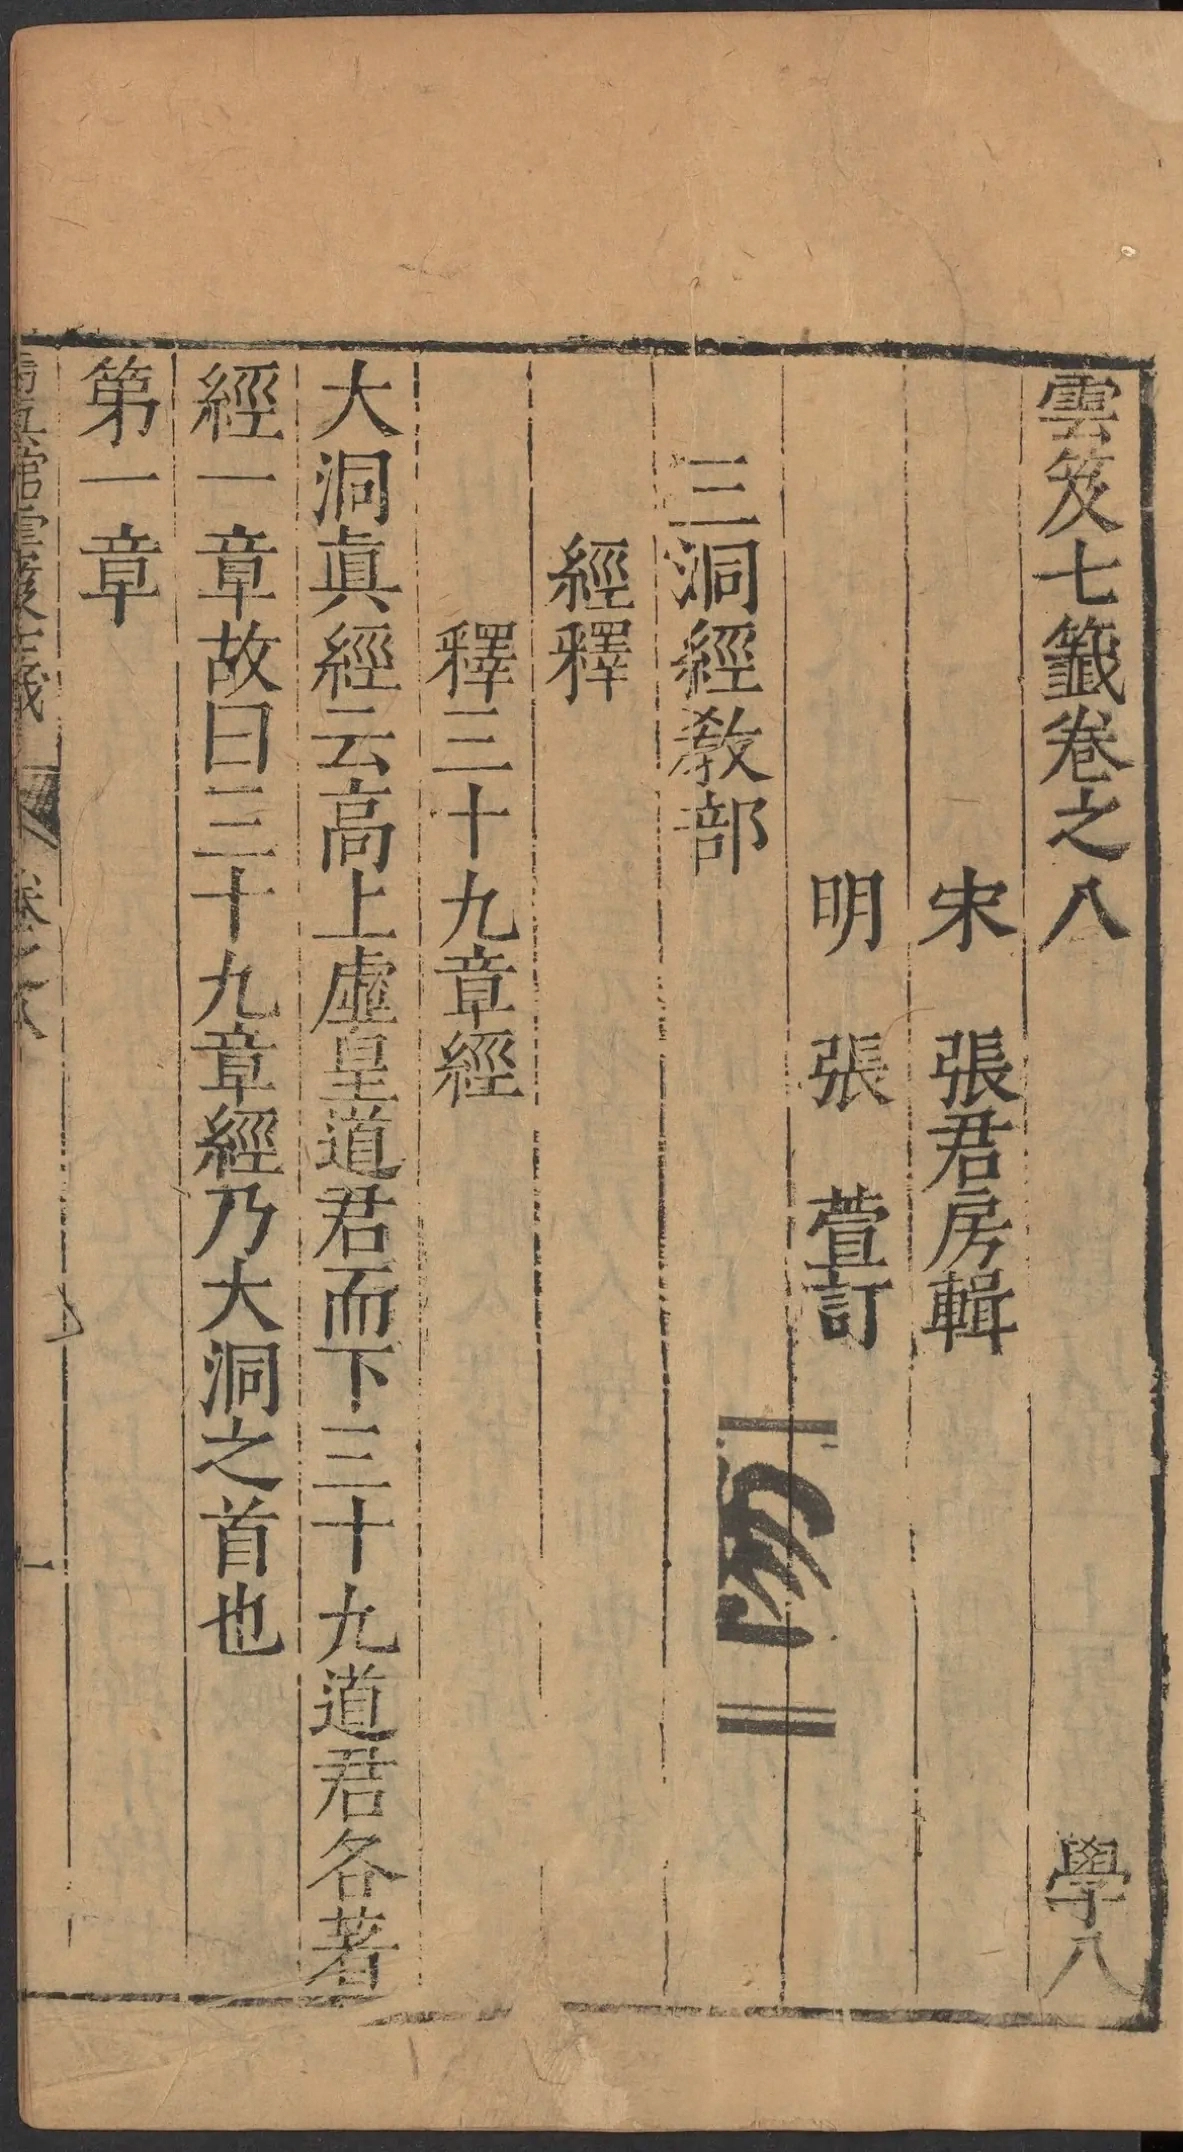 雲笈七籤卷之八 學八
宋 張君房輯
明 張 萱訂
三洞經教部
經釋
釋三十九章經
大洞眞經云高上虛皇道君而下三十九道君各著
經一章故曰三十九章經乃大洞之首也
第一章
卷之八 一